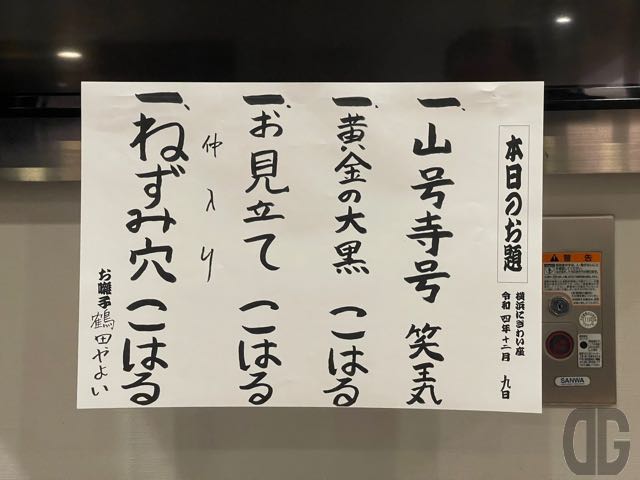 本日のお題
横浜にぎわい座
令和四年十二月 九日
一、山号寺号 笑王丸
一、黄金の大黒 こはる
一、お見立て こはる
仲入り
一、ねずみ穴 こはる
お囃子 鶴田やよい
警告
SANWA
DG